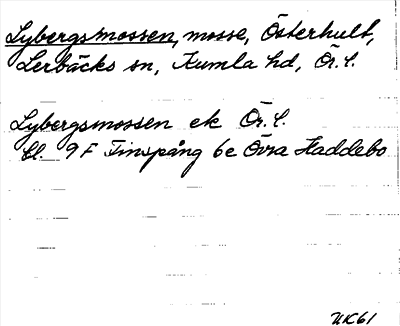 Lybergsmossen, mosse, Österhult,
Lerbäcks sn, Kumla hd, Ör. l.
Lybergsmossen ek Ör. l.
bl. 9F Finspång 6e Övra Haddebo
UK61